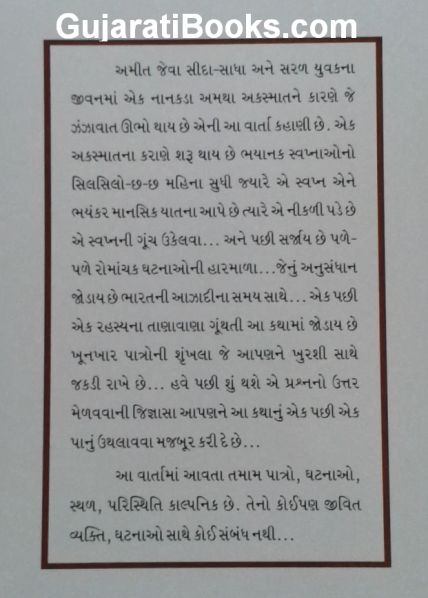 GujaratiBooks.com
અમીત જેવા સીદા-સાધા અને સરળ યુવકના
જીવનમાં એક નાનકડા અમથા અકસ્માતને કારણે જે
ઝંઝાવાત ઊભો થાય છે એની આ વાર્તા કહાણી છે. એક
અકસ્માતના કરાણે શરૂ થાય છે ભયાનક સ્વપ્નાઓનો
સિલસિલો-છ-છ મહિના સુધી જયારે એ સ્વપ્ન એને
ભયંકર માનસિક યાતના આપે છે ત્યારે એ નીકળી પડે છે
એ સ્વપ્નની ગૂંચ ઉકેલવા... અને પછી સર્જાય છે પળે-
પળે રોમાંચક ઘટનાઓની હારમાળા...જેનું અનુસંધાન
જોડાય છે ભારતની આઝાદીના સમય સાથે... એક પછી
એક રહસ્યના તાણાવાણા ગૂંથતી આ કથામાં જોડાય છે
ખૂનખાર પાત્રોની શૃંખલા જે આપણને ખુરશી સાથે
જકડી રાખે છે... હવે પછી શું થશે એ પ્રશ્નનો ઉત્તર
મેળવવાની જિજ્ઞાસા આપણને આ કથાનું એક પછી એક
પાનું ઉથલાવવા મજબૂર કરી દે છે...
આ વાર્તામાં આવતા તમામ પાત્રો, ઘટનાઓ,
સ્થળ, પરિસ્થિતિ કાલ્પનિક છે. તેનો કોઈપણ જીવિત
વ્યક્તિ, ઘટનાઓ સાથે કોઈ સંબંધ નથી...